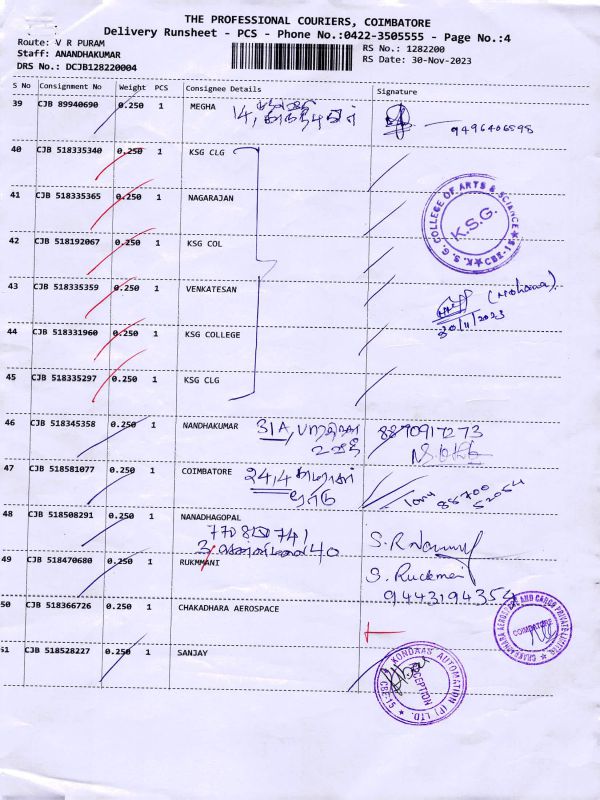 THE PROFESSIONAL COURIERS, COIMBATORE
Delivery Runsheet - PCS - Phone No.:0422-3505555 - Page No.:4
Route: V R PURAM
RS No.: 1282200
Staff: ANANDHAKUMAR
RS Date: 30-Nov-2023
DRS No.: DCJB128220004
S No Consignment No Weight PCS Consignee Details Signature
39 CJB 89940690 0.250 1 MEGHA 14, 9496406898
40 CJB 518335340 0.250 1 KSG CLG
41 CJB 518335365 0.250 1 NAGARAJAN
42 CJB 518192067 0.250 1 KSG COL
K.S.G. COLLEGE OF ARTS & SCIENCE CBE-15
K.S.G.
43 CJB 518335359 0.250 1 VENKATESAN
30/11/2023
44 CJB 518331960 0.250 1 KSG COLLEGE
45 CJB 518335297 0.250 1 KSG CLG
46 CJB 518345358 0.250 1 NANDHAKUMAR 31A, 8870917273
47 CJB 518581077 0.250 1 COIMBATORE 24,4
88700
52054
48 CJB 518508291 0.250 1 NANADHAGOPAL
49 CJB 518470680 0.250 1 RUKMMANI S. Ruckmei
9443194354
50 CJB 518366726 0.250 1 CHAKADHARA AEROSPACE
CHAKRADHARA AEROSPACE AND CARGO PRIVATE LIMITED
COIMBATORE
51 CJB 518528227 0.250 1 SANJAY
KONDAAS AUTOMATION (P) LTD. CBE-15
RECEPTION